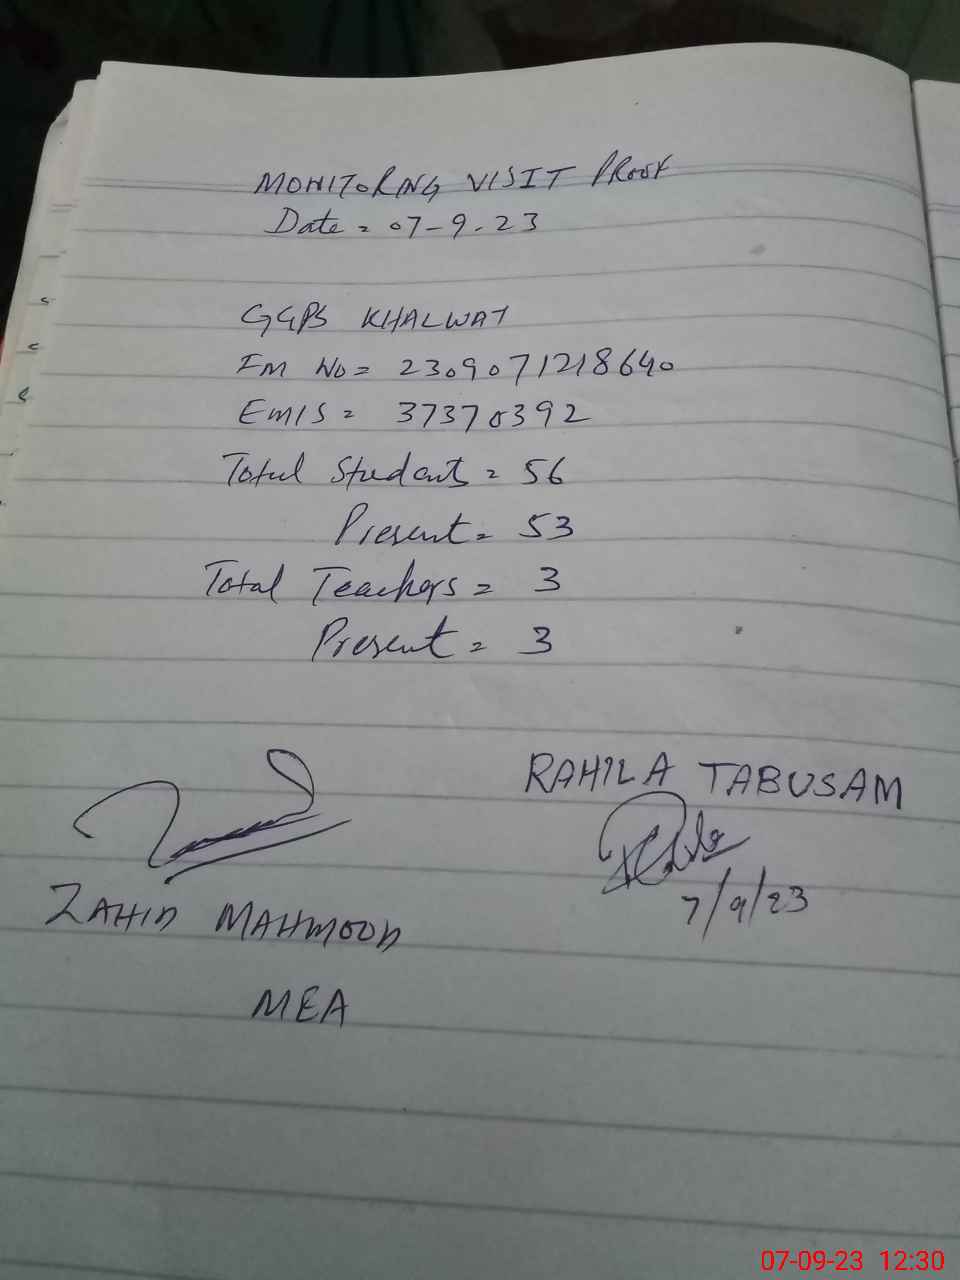 MONITORNG VISIT PROOF
Date = 07-9-23
GGPS KHALWAT
IM No = 2309071218640
EMIS = 37370392
Total Student = 56
Present = 53
Total Teachers = 3
Present = 3
RAHILA TABUSAM
7/9/23
ZAHID MAHMOOD
MEA
07-09-23 12:30